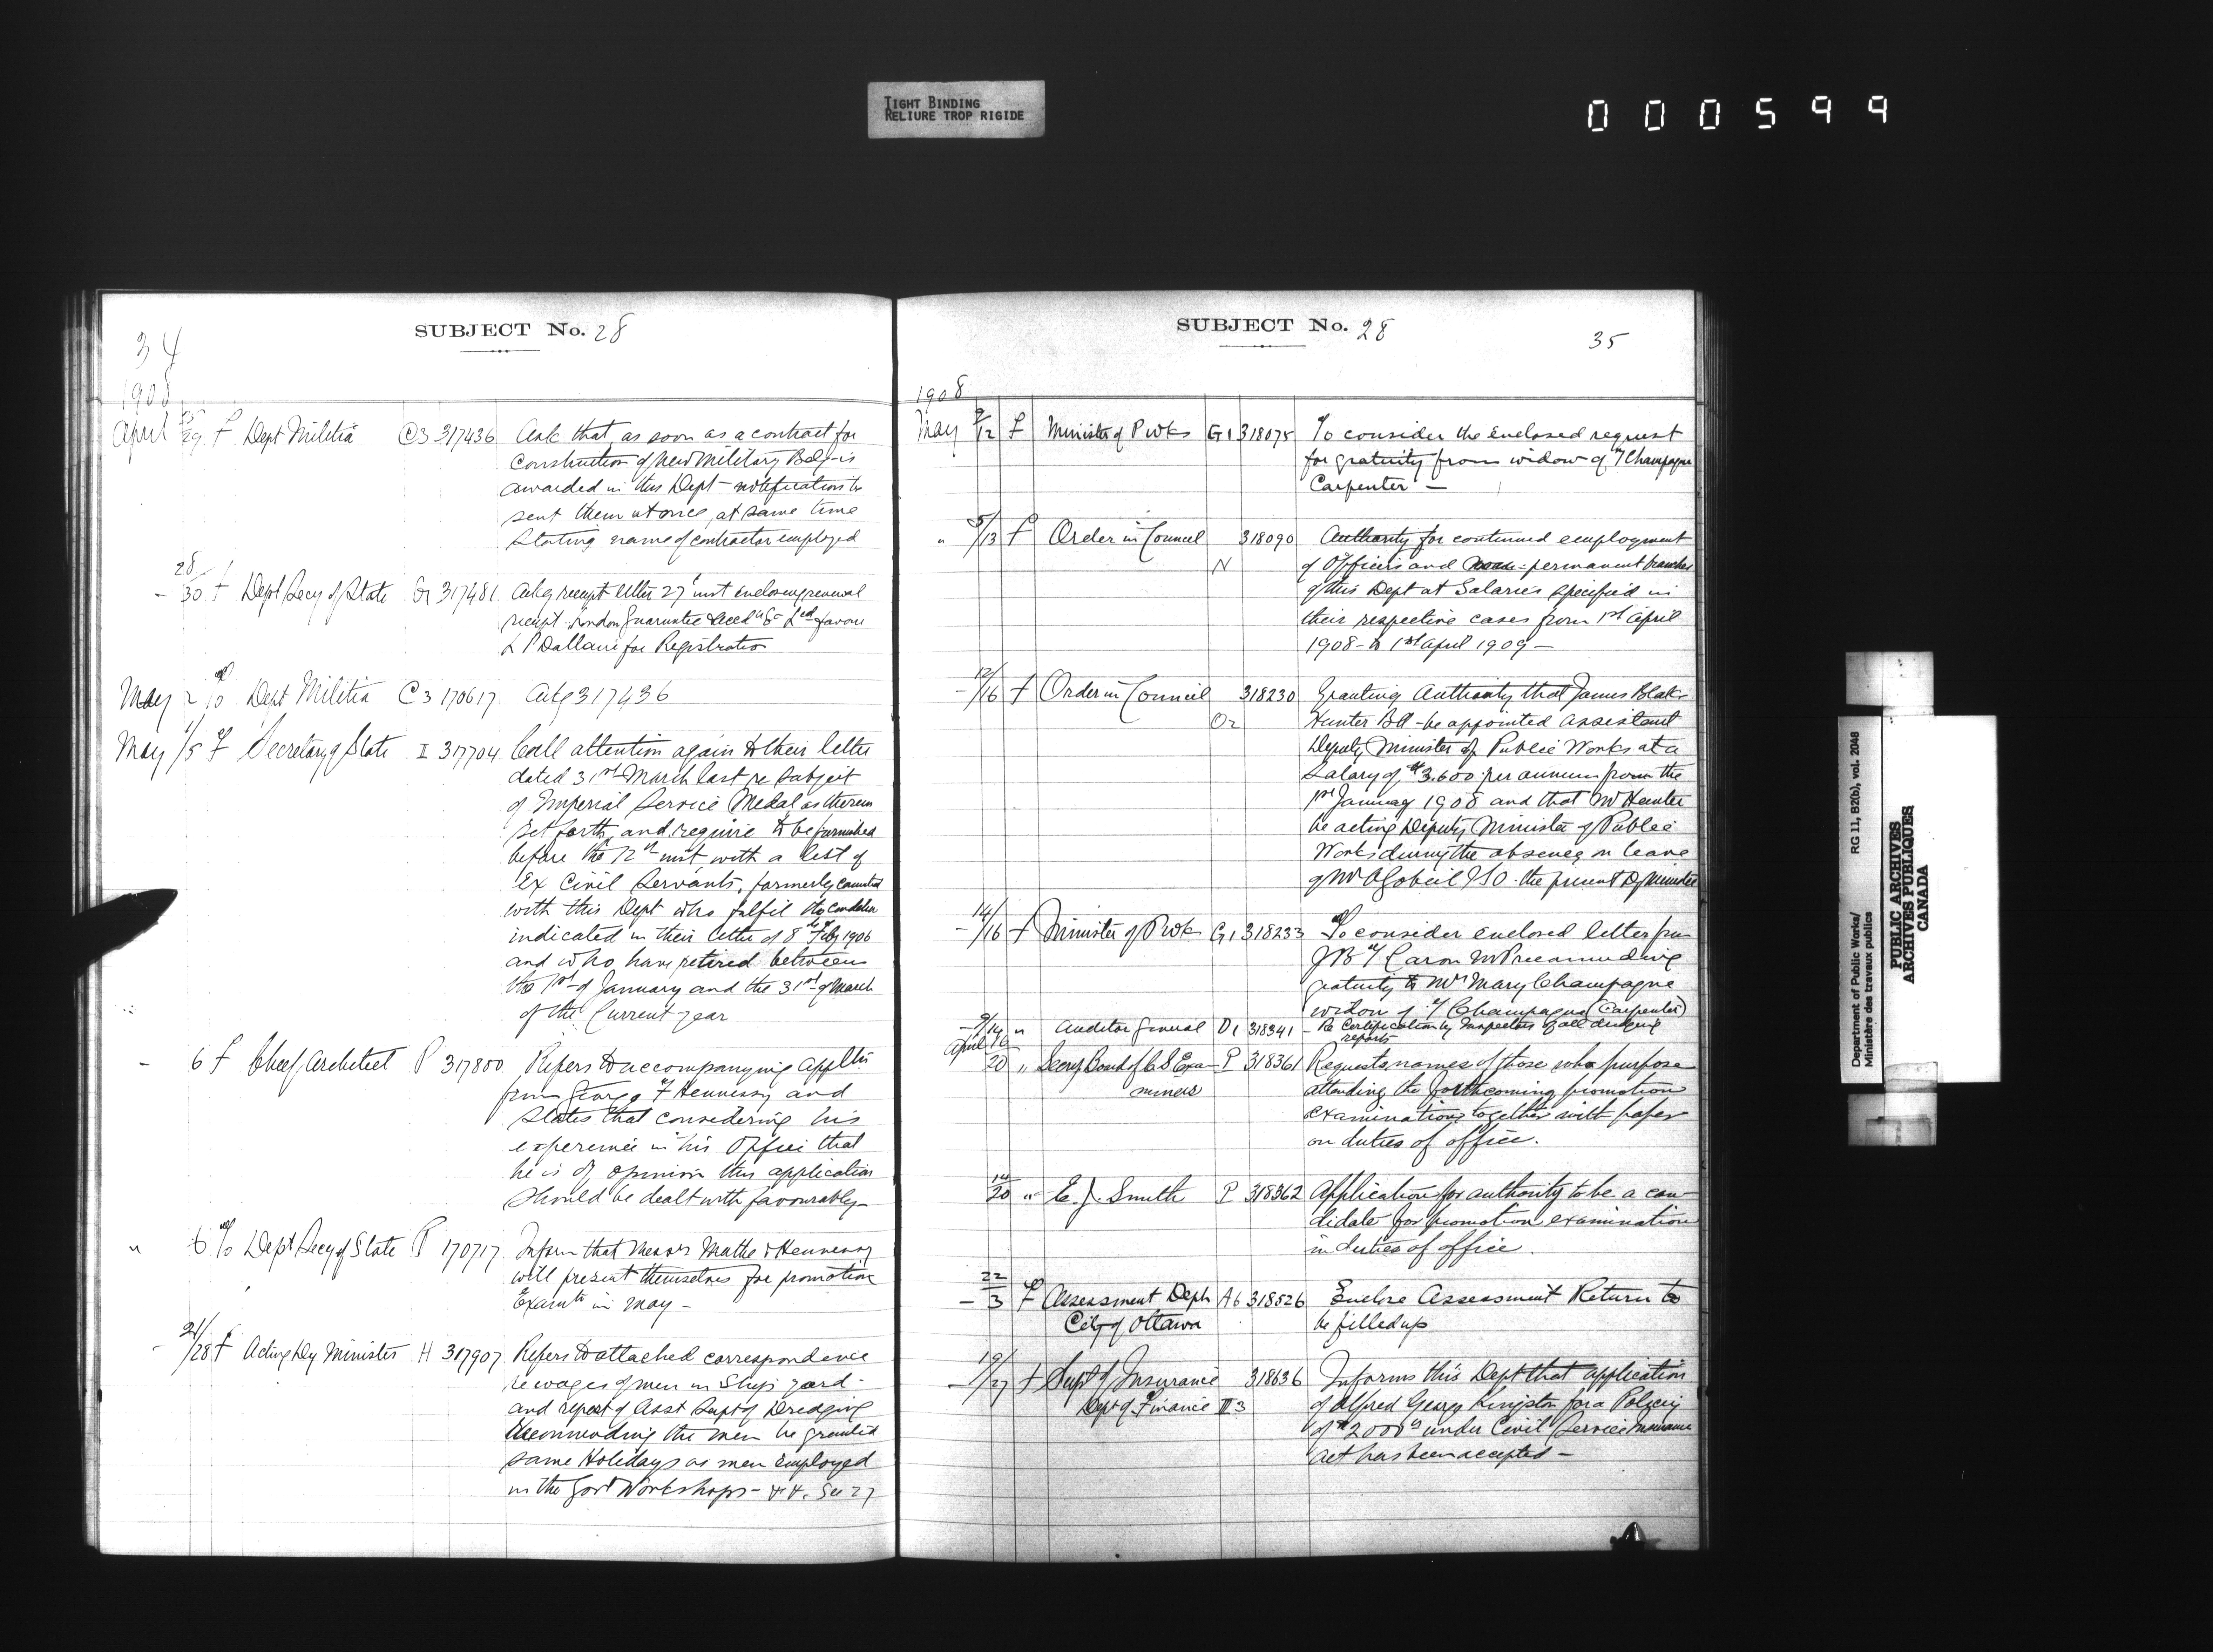 TIGHT BINDING
RELIURE TROP RIGIDE
000599
SUBJECT No. 28
34
1908
April 29 F Dept Militia C3 317436 Ask that as soon as a contract for
Construction of New Military Bldg is
awarded in this Dept - notification be
sent them at once, at same time
Stating name of contractor employed
28
- 30 F Dept Secy of State 317481 Ackg receipt letter 27 inst enclosing renewal
receipt London Guarantee & Accdt Co Ltd favour
L P Dallaire for Registration
May 2 Dept Militia C3 170617 Ackg 317436
May 1/5 F Secretary of State II 317704 Call attention again to their letter
dated 31st March last re subject
of Imperial Service Medal as therein
set forth, and require to be furnished
before the 12th inst with a list of
Ex Civil Servants, formerly connected
with this Dept who fulfil the condition
indicated in their letter of 8th Feby 1906
and who have retired between
the 1st of January and the 31st of March
of the Current year
- 6 F Chief Architect P 317800 Refers to accompanying Appln
from George F Hennessy and
States that considering his
experience in his Office that
he is of opinion this application
should be dealt with favourably -
" 6 Dept Secy of State P 170717 Inform that Messrs Mathe & Hennessy
will present themselves for promotion
Examtn in May -
- 21/28 F Acting Dy Minister H 317907 Refers to attached correspondence
re wages of men in Ship yard -
and report of Asst Supt of Dredging
Recommending the men be granted
same Holidays as men employed
in the Govt Workshops - See 27
SUBJECT No. 28
35
1908
May 9/12 F Minister of P Wks G1 318075 To consider the enclosed request
for gratuity from widow of Champagne
Carpenter -
" 5/13 F Order in Council N 318090 Authority for continued employment
of Officers and non-permanent branches
of this Dept at Salaries specified in
their respective cases from 1st April
1908 - to 1st April 1909 -
- 12/16 F Order in Council O2 318230 Granting Authority that James Blake
Hunter BA - be appointed assistant
Deputy Minister of Public Works at a
Salary of $3.600 per annum from the
1st January 1908 and that Mr Hunter
be acting Deputy Minister of Public
Works during the absence on leave
of Mr A Gobeil ISO the present Dy Minister
- 14/16 F Minister of P Wks G1 318233 To consider enclosed letter from
J B T Caron MP recommending
gratuity to Mrs Mary Champagne
widow of Champagne (Carpenter)
- 9/14 " Auditor General D1 318341 - Re Certification by Inspectors of all dredging
reports
April 16
20 " Secy Board of C S Exa- P 318361 Requests names of those who purpose
miners attending the forthcoming promotion
examination together with paper
on duties of office.
14/20 " E. J. Smith P 318362 Application for authority to be a can-
didate for promotion examination
in duties of office.
22
- 3 F Assessment Dept A6 318526 Enclose Assessment Return to
City of Ottawa be filled up
19/27 F Supt of Insurance 318636 Informs this Dept that application
Dept of Finance II3 of Alfred George Kingston for a Policy
of $2000 under Civil Service Insurance
Act has been accepted -
Department of Public Works/ RG 11, B2(b), vol. 2048
Ministère des travaux publics
PUBLIC ARCHIVES
ARCHIVES PUBLIQUES
CANADA